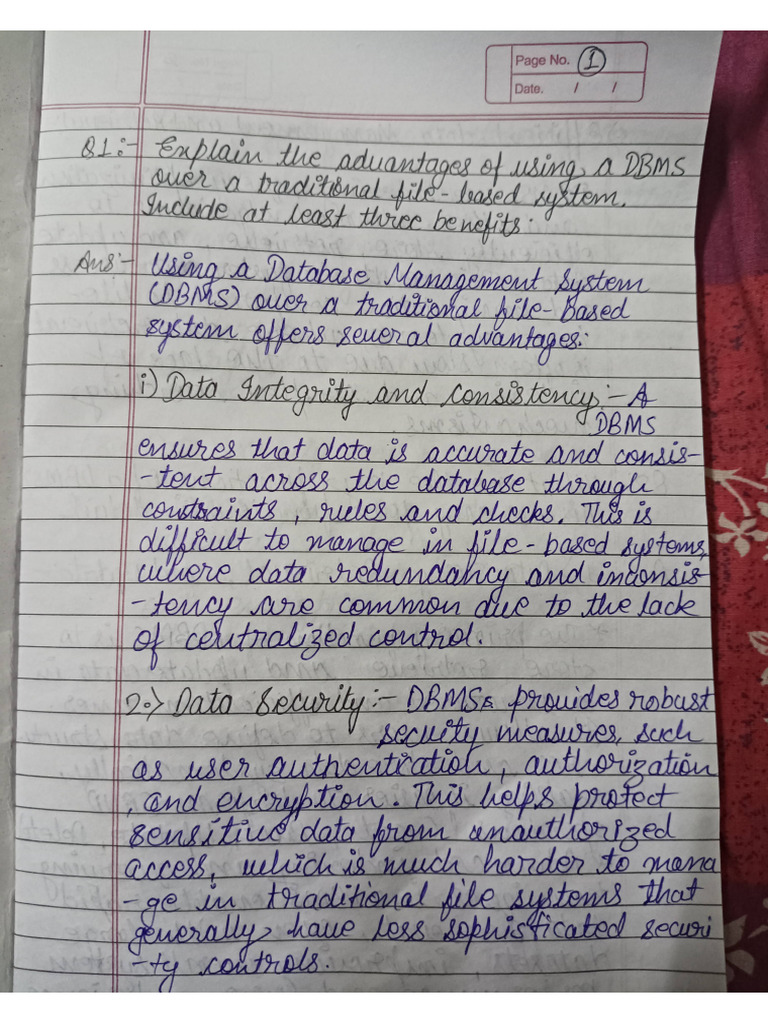 Page No. 1
Date. / /
Q1:- Explain the advantages of using a DBMS
over a traditional file-based system.
Include at least three benefits.
Ans:- Using a Database Management System
(DBMS) over a traditional file-based
system offers several advantages:
i) Data Integrity and Consistency:- A
DBMS
ensures that data is accurate and consis-
-tent across the database through
constraints, rules and checks. This is
difficult to manage in file-based systems,
where data redundancy and inconsis-
-tency are common due to the lack
of centralized control.
2.) Data Security:- DBMSs provides robust
security measures, such
as user authentication, authorization
, and encryption. This helps protect
sensitive data from unauthorized
access, which is much harder to mana
-ge in traditional file systems that
generally have less sophisticated securi
-ty controls.